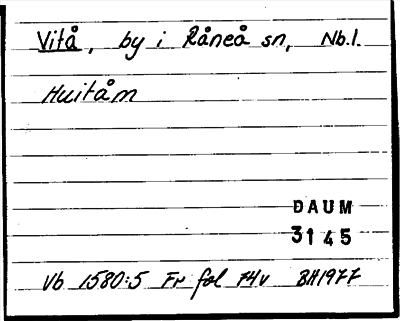 Vitå, by i Råneå sn, Nb.l.
Huitåm
DAUM
3145
Vb 1580:5 Fr fol 74v BH1977